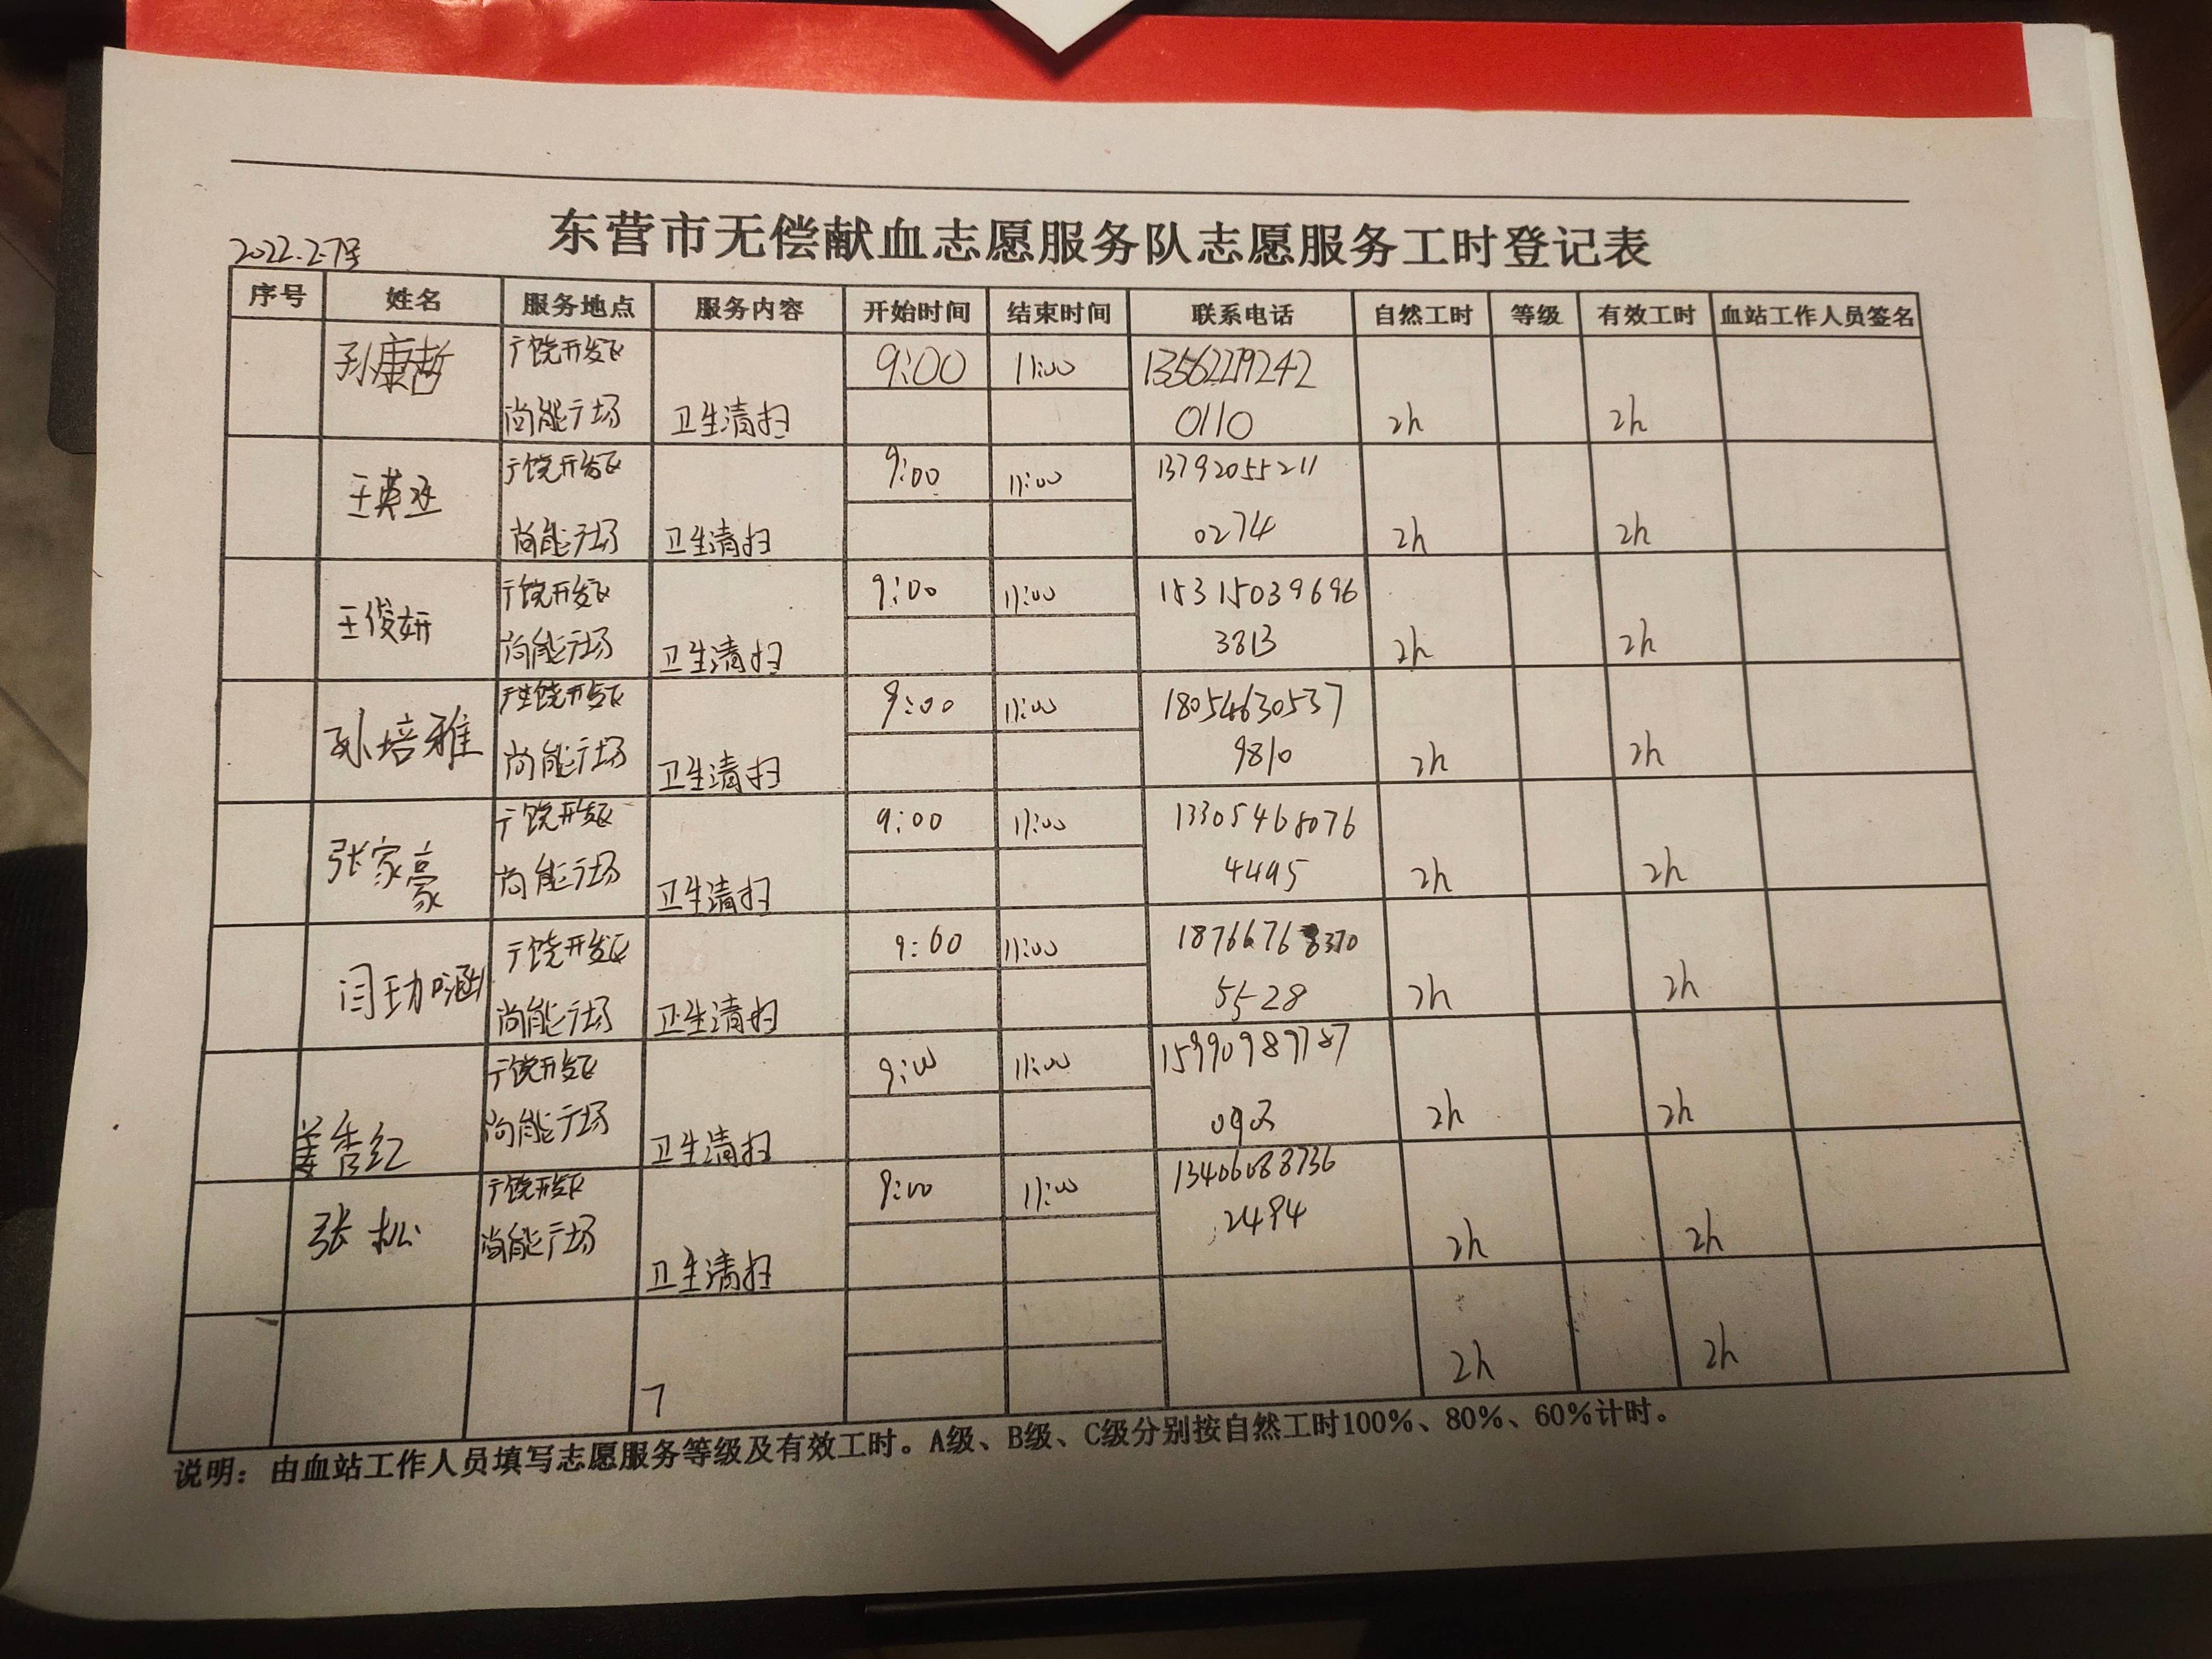 东营市无偿献血志愿服务队志愿服务工时登记表
2022.2.7号
序号 姓名 服务地点 服务内容 开始时间 结束时间 联系电话 自然工时 等级 有效工时 血站工作人员签名
孙康哲 广饶开发区 9:00 11:00
尚能广场 卫生清扫 0110 2h 2h
广饶开发区 9:00 11:00 13792055211
尚能广场 卫生清扫 0274 2h 2h
王俊妍 广饶开发区 9:00 11:00 15315039696
尚能广场 卫生清扫 3813 2h 2h
孙培雅 广饶开发区 9:00 11:00 18054630537
尚能广场 卫生清扫 9810 2h 2h
张家豪 广饶开发区 9:00 11:00 13305468076
尚能广场 卫生清扫 4495 2h 2h
广饶开发区 9:00 11:00 18766768370
尚能广场 卫生清扫 5528 2h 2h
姜香红 广饶开发区 9:00 11:00
尚能广场 卫生清扫 2h 2h
张松 广饶开发区 9:00 11:00 13406088736
尚能广场 卫生清扫 2494 2h 2h
2h 2h
说明：由血站工作人员填写志愿服务等级及有效工时。A级、B级、C级分别按自然工时100%、80%、60%计时。